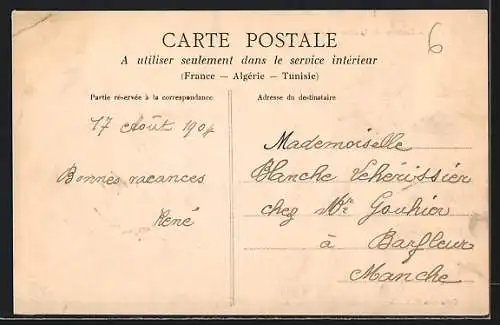 6
CARTE POSTALE
A utiliser seulement dans le service intérieur
(France — Algérie — Tunisie)
Partie réservée à la correspondance
17 Août 1904
Bonnes vacances
René
Adresse du destinataire
Mademoiselle
Blanche Lehérissier
chez Mr Gouhier
à Barfleur
Manche